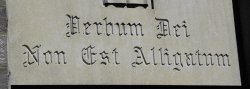 Verbum Dei
Non Est Alligatum